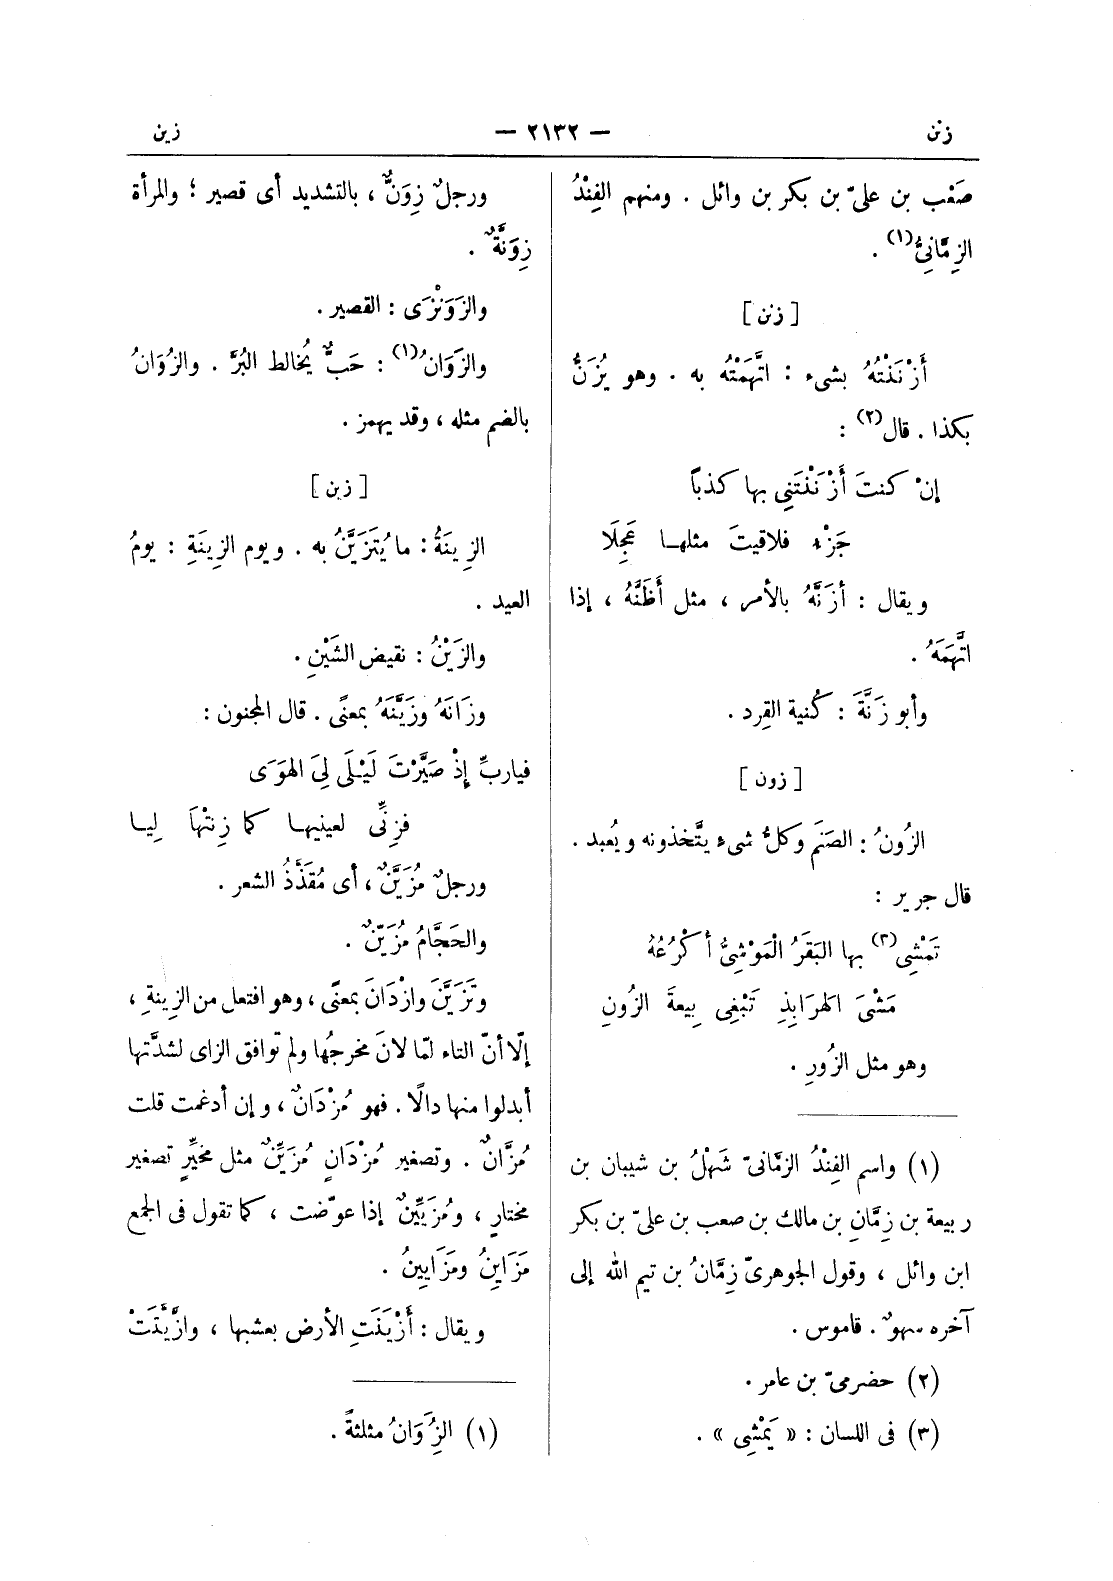 زنن
— ٢١٣٢ —
زين
صَعْب بن علىّ بن بكر بن وائل . ومنهم الفِنْدُ
الزِمَّانِىُّ(١) .
[ زنن ]
أَزْنَنْتُهُ بشىء : اتَّهَمْتُه به . وهو يُزَنُّ
بكذا . قال(٢) :
إنْ كنتَ أَزْنَنْتَنِى بها كذباً
جَزْء فلاقيتَ مثلها عَجِلَا
ويقال : أزَنَّهُ بالأمر ، مثل أَظَنَّهُ ، إذا
اتَّهَمَهُ .
وأبو زَنَّةَ : كُنية القِرد .
[ زون ]
الزُونُ : الصَنَم وكلُّ شىء يتَّخذونه ويُعبد .
قال جرير :
تَمْشِى(٣) بها البَقَرُ الْمَوْشِىُّ أكْرُعُهُ
مَشْىَ الهرَابِذِ تَبْغِى بِيعةَ الزُونِ
وهو مثل الزُورِ .
(١) واسم الفِنْدُ الزمّانىّ شَهْلُ بن شيبان بن
ربيعة بن زِمَّانِ بن مالك بن صعب بن علىّ بن بكر
ابن وائل ، وقول الجوهرىّ زِمَّانُ بن تيم الله إلى
آخره سهوٌ . قاموس .
(٢) حضرمىّ بن عامر .
(٣) فى اللسان : « يَمْشِى » .
ورجلٌ زِوَنٌّ ، بالتشديد أى قصير ؛ والمرأة
زِوَنَّةٌ .
والزَوَنْزَى : القصير .
والزَوَانُ(١) : حَبٌّ يُخالط البُرَّ . والزُوَانُ
بالضم مثله ، وقد يهمز .
[ زين ]
الزِينَةُ : ما يُتَزَيَّنُ به . ويوم الزِينَةِ : يومُ
العيد .
والزَيْنُ : نقيض الشَيْنِ .
وزَانَهُ وزَيَّنَهُ بمعنًى . قال المجنون :
فيارب إذْ صَيَّرْتَ لَيْلَى لِىَ الهوَى
فزِنِّى لعينيها كما زِنتْهَا لِيا
ورجلٌ مُزَيَّنٌ ، أى مُقَذَّذُ الشعر .
والحَجَّامُ مُزَيِّنٌ .
وتَزَيَّنَ وازْدَانَ بمعنًى ، وهو افتعل من الزِينةِ ،
إلّا أنّ التاء لمّا لانَ مخرجُها ولم توافق الزاى لشدَّتها
أبدلوا منها دالًا . فهو مُزْدَانٌ ، وإن أدغمت قلت
مُزَّانٌ . وتصغير مُزْدَانٍ مُزَيِّنٌ مثل مخيِّرٍ تصغير
مختارٍ ، ومُزَيِّينٌ إذا عوّضت ، كما تقول فى الجمع
مَزَاينُ ومَزَايِينُ .
ويقال : أَزْيَنَتِ الأرض بعشبها ، وازَّيَّنَتْ
(١) الزُِوَانُ مثلثةً .